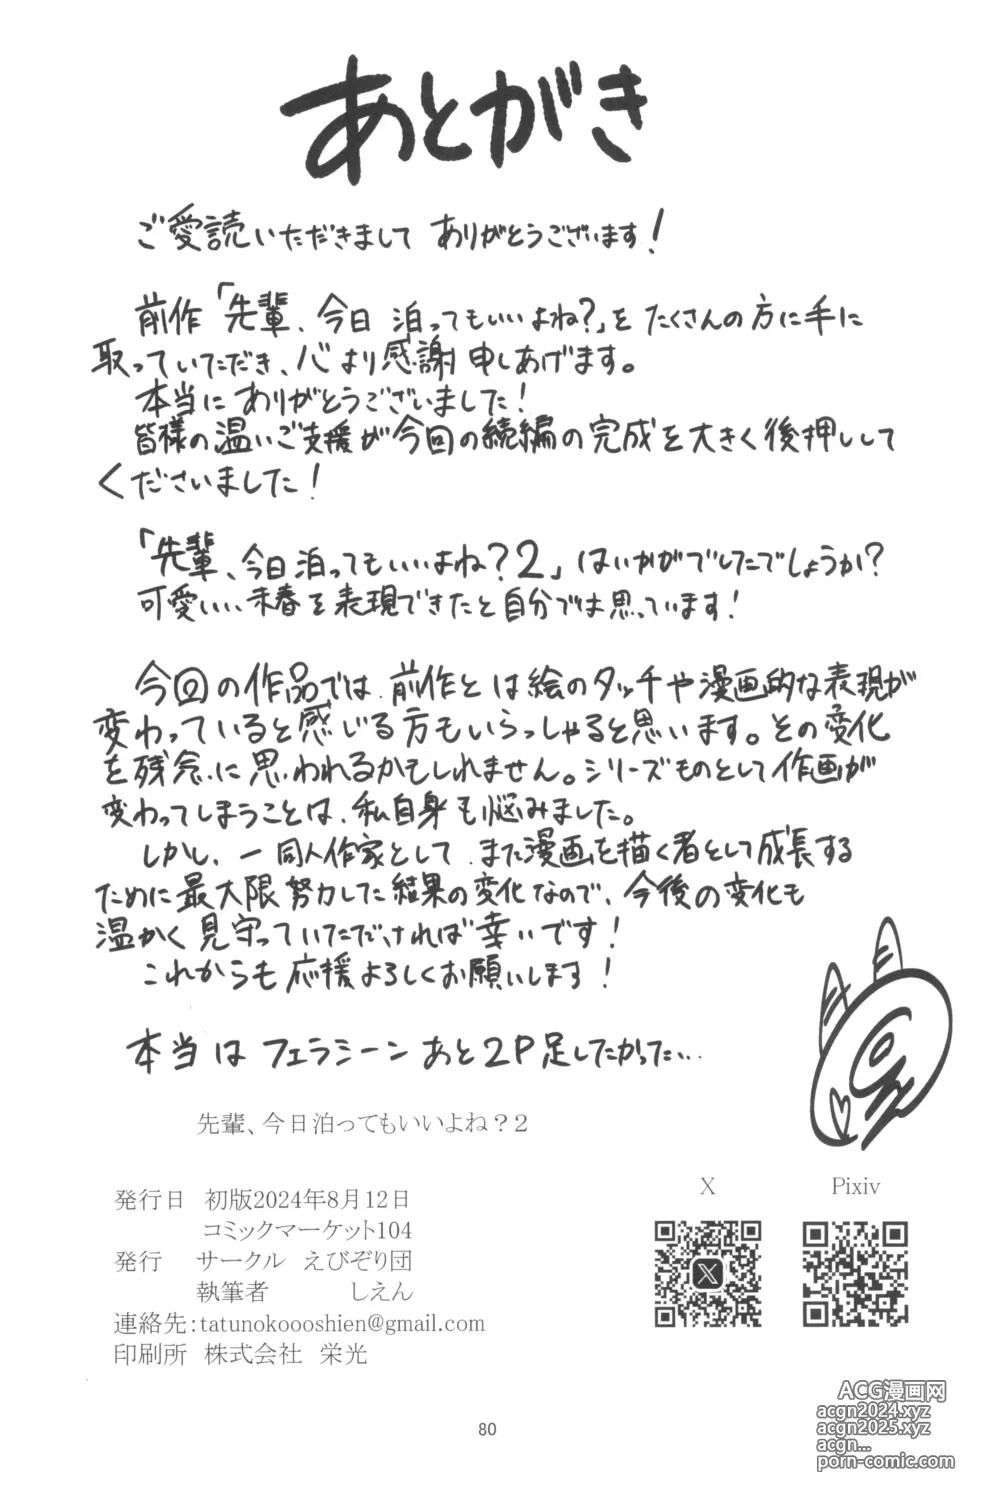 あとがき
ご愛読いただきまして ありがとうございます!
前作「先輩、今日 泊ってもいいよね?」を たくさんの方に手に
取っていただき、心より感謝申しあげます。
本当に ありがとうございました!
皆様の温いご支援が今回の続編の完成を大きく後押しして
くださいました!
「先輩、今日泊ってもいいよね?2」はいかがでしたでしょうか?
可愛いい未春を表現できたと自分では思っています!
今回の作品では、前作とは絵のタッチや漫画的な表現が
変わっていると感じる方もいらっしゃると思います。その変化
を残念に思われるかもしれません。シリーズものとして作画が
変わってしまうことは、私自身も悩みました。
しかし、一同人作家として、また漫画を描く者として成長する
ために最大限努力した結果の変化なので、今後の変化も
温かく見守っていただければ幸いです!
これからも応援よろしくお願いします!
本当は フェラシーン あと2P足したかった…
先輩、今日泊ってもいいよね?2
発行日 初版2024年8月12日
コミックマーケット104
発行 サークル えびぞり団
執筆者 しえん
連絡先:tatunokoooshien@gmail.com
印刷所 株式会社 栄光
X
Pixiv
ACG漫画网
acgn2024.xyz
acgn2025.xyz
acgn...
porn-comic.com
80